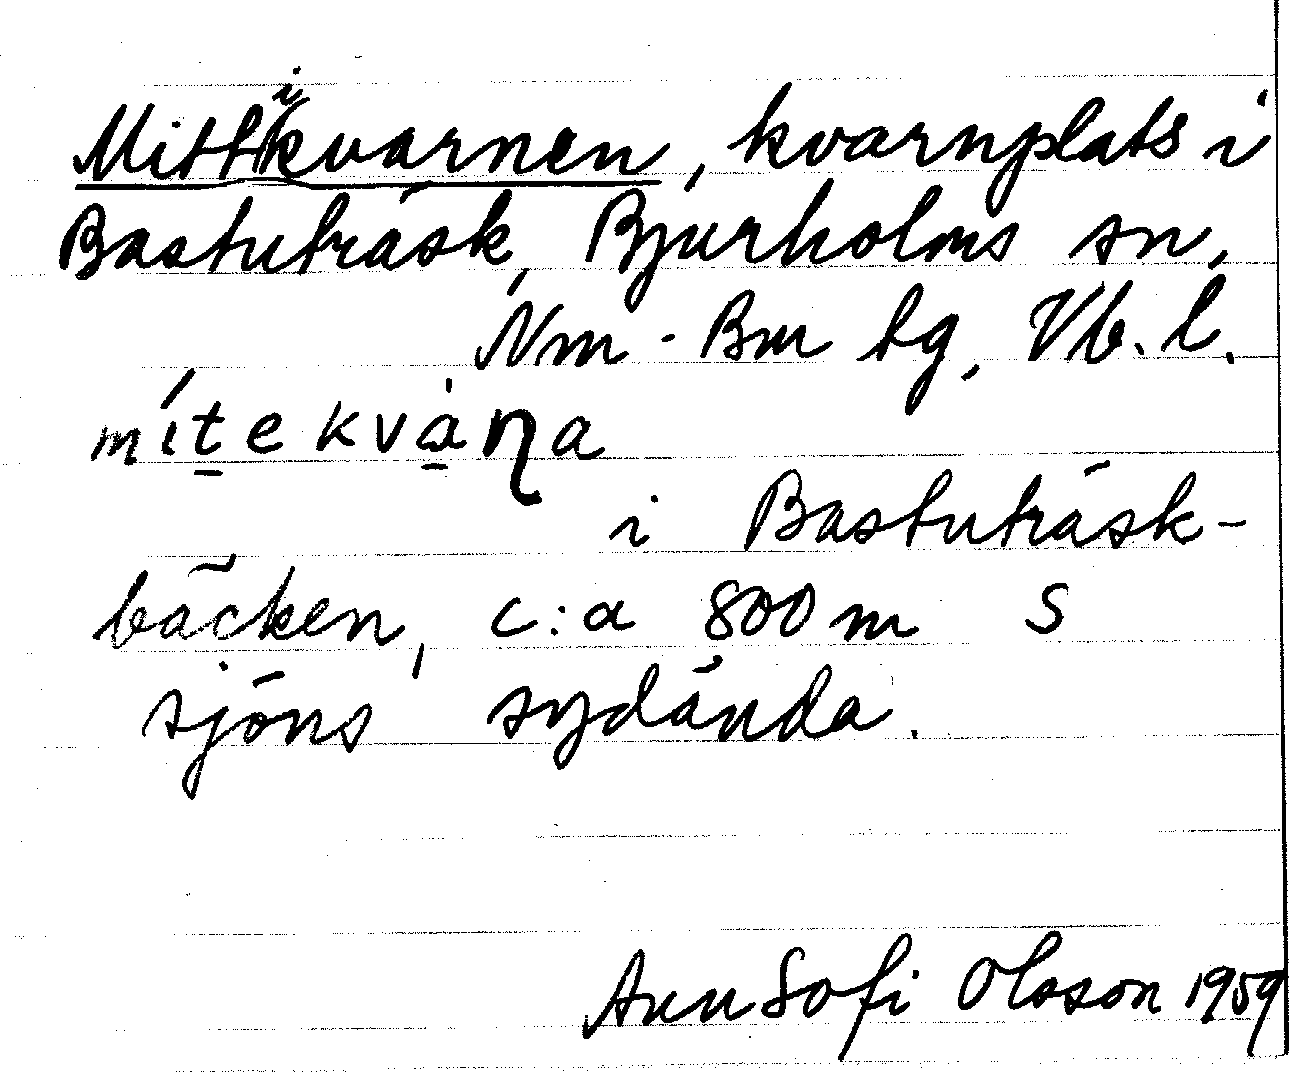 Mittikvarnen, kvarnplats i
Bastuträsk, Bjurholms sn,
Nm-Bm tg, Vb. l.
mı́t̲ekvà̲ɳa
i Bastuträsk-
bäcken, c:a 800 m S
sjöns sydända.
Ann Sofi Olsson 1959